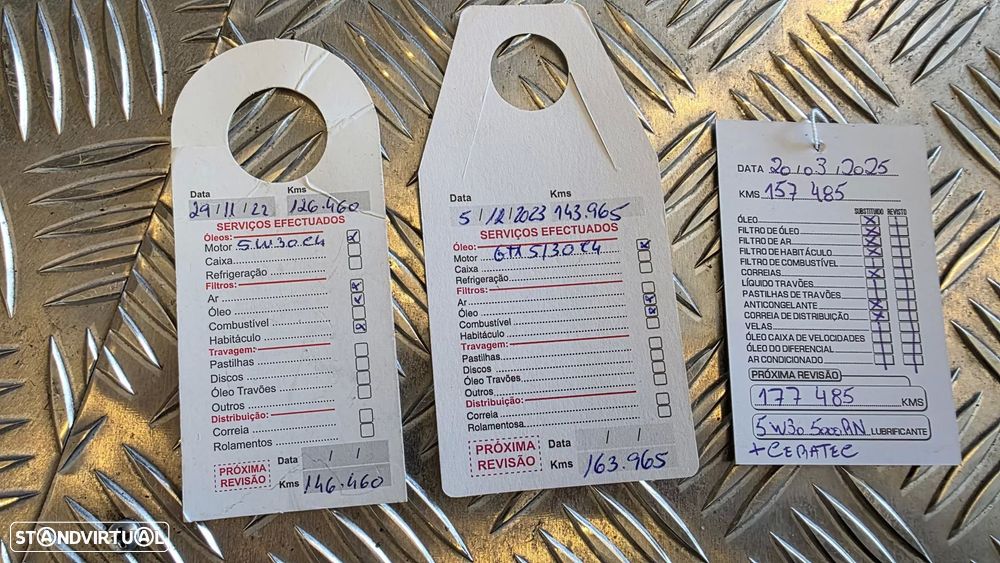 Data Kms
29 / 11 / 22 126.460
SERVIÇOS EFECTUADOS
Óleos:
Motor 5W30 C4
Caixa
Refrigeração
Filtros:
Ar
Óleo
Combustível
Habitáculo
Travagem:
Pastilhas
Discos
Óleo Travões
Outros
Distribuição:
Correia
Rolamentos
PRÓXIMA REVISÃO
Data / /
Kms 146.460
Data Kms
5 / 12 / 2023 143.965
SERVIÇOS EFECTUADOS
Óleo:
Motor GTX 5/30 C4
Caixa
Refrigeração
Filtros:
Ar
Óleo
Combustível
Habitáculo
Travagem:
Pastilhas
Discos
Óleo Travões
Outros
Distribuição:
Correia
Rolamentosa
PRÓXIMA REVISÃO
Data / /
Kms 163.965
DATA 20/03/2025
KMS 157 485
SUBSTITUIDO REVISTO
ÓLEO
FILTRO DE ÓLEO
FILTRO DE AR
FILTRO DE HABITÁCULO
FILTRO DE COMBUSTÍVEL
CORREIAS
LÍQUIDO TRAVÕES
PASTILHAS DE TRAVÕES
ANTICONGELANTE
CORREIA DE DISTRIBUIÇÃO
VELAS
ÓLEO CAIXA DE VELOCIDADES
ÓLEO DO DIFERENCIAL
AR CONDICIONADO
PRÓXIMA REVISÃO
177 485 KMS
5W30 5000RN LUBRIFICANTE
+CERATEC
STANDVIRTUAL